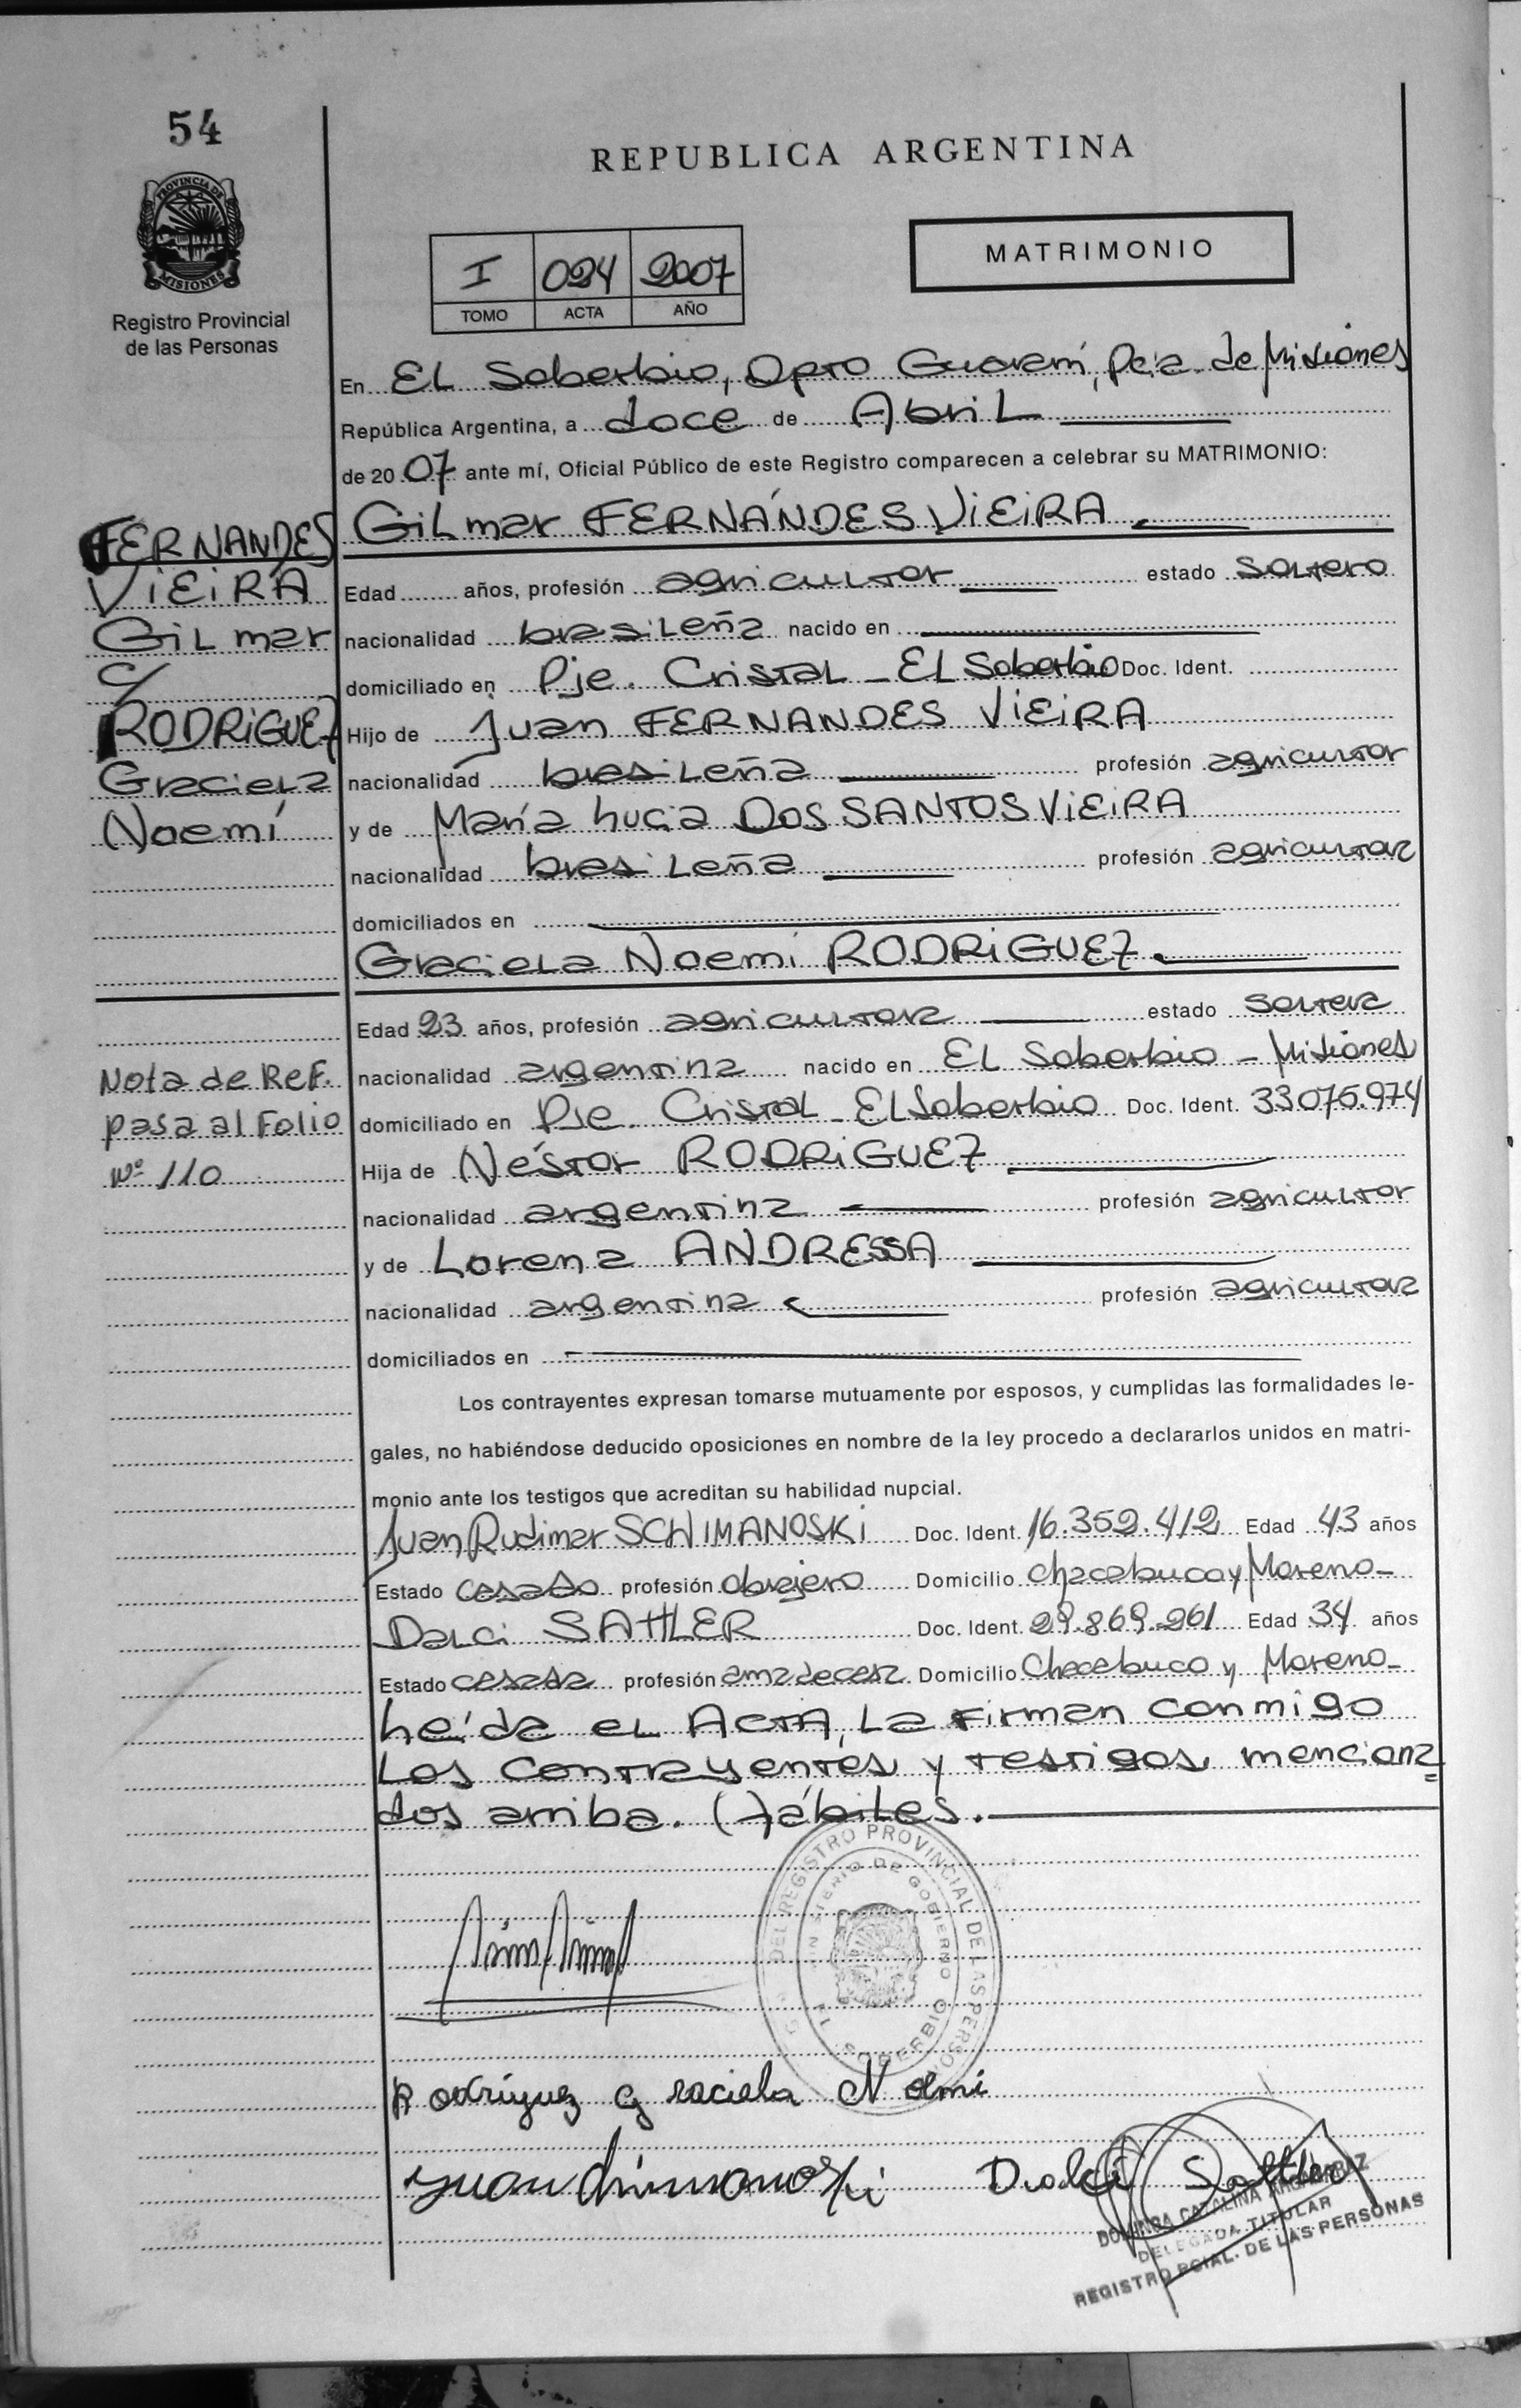 54
PROVINCIA DE
MISIONES
Registro Provincial
de las Personas
REPUBLICA ARGENTINA
MATRIMONIO
I 024 2007
TOMO ACTA AÑO
En EL Soberbio, Dpto Guaraní, Pcia. de Misiones
República Argentina, a doce de Abril
de 2007 ante mí, Oficial Público de este Registro comparecen a celebrar su MATRIMONIO:
FERNANDES
VIEIRA
Gilmar
c/
RODRIGUEZ
Graciela
Noemí
Gilmar FERNÁNDES VIEIRA
Edad años, profesión agricultor estado soltero
nacionalidad brasileña nacido en
domiciliado en Pje. Cristal - El Soberbio Doc. Ident.
Hijo de Juan FERNANDES VIEIRA
nacionalidad brasileña profesión agricultor
y de María Lucia DOS SANTOS VIEIRA
nacionalidad brasileña profesión agricultora
domiciliados en
Graciela Noemi RODRIGUEZ
Edad 23 años, profesión agricultora estado soltera
nacionalidad argentina nacido en El Soberbio - Misiones
domiciliado en Pje. Cristal - El Soberbio Doc. Ident. 33075.974
Hija de Néstor RODRIGUEZ
nacionalidad argentina profesión agricultor
y de Lorena ANDRESSA
nacionalidad argentina profesión agricultora
domiciliados en
Nota de Ref.
pasa al Folio
Nº 110
Los contrayentes expresan tomarse mutuamente por esposos, y cumplidas las formalidades le-
gales, no habiéndose deducido oposiciones en nombre de la ley procedo a declararlos unidos en matri-
monio ante los testigos que acreditan su habilidad nupcial.
Juan Rudimar SCHIMANOSKI Doc. Ident. 16.352.412 Edad 43 años
Estado casado profesión obrajero Domicilio Chacabuco y Moreno-
Darci SATTLER Doc. Ident. 29.869.261 Edad 34 años
Estado casada profesión ama de casa Domicilio Chacabuco y Moreno-
Leída el ACTA, La firman conmigo
Los contrayentes y testigos menciona=
dos arriba. Hábiles.
DEL REGISTRO PROVINCIAL DE LAS PERSONAS
MINISTERIO DE GOBIERNO
SOBERBIO
Rodríguez Graciela Noemi
Juan Schimanoski
Sattler
CATALINA
DELEGADA TITULAR
REGISTRO PCIAL. DE LAS PERSONAS